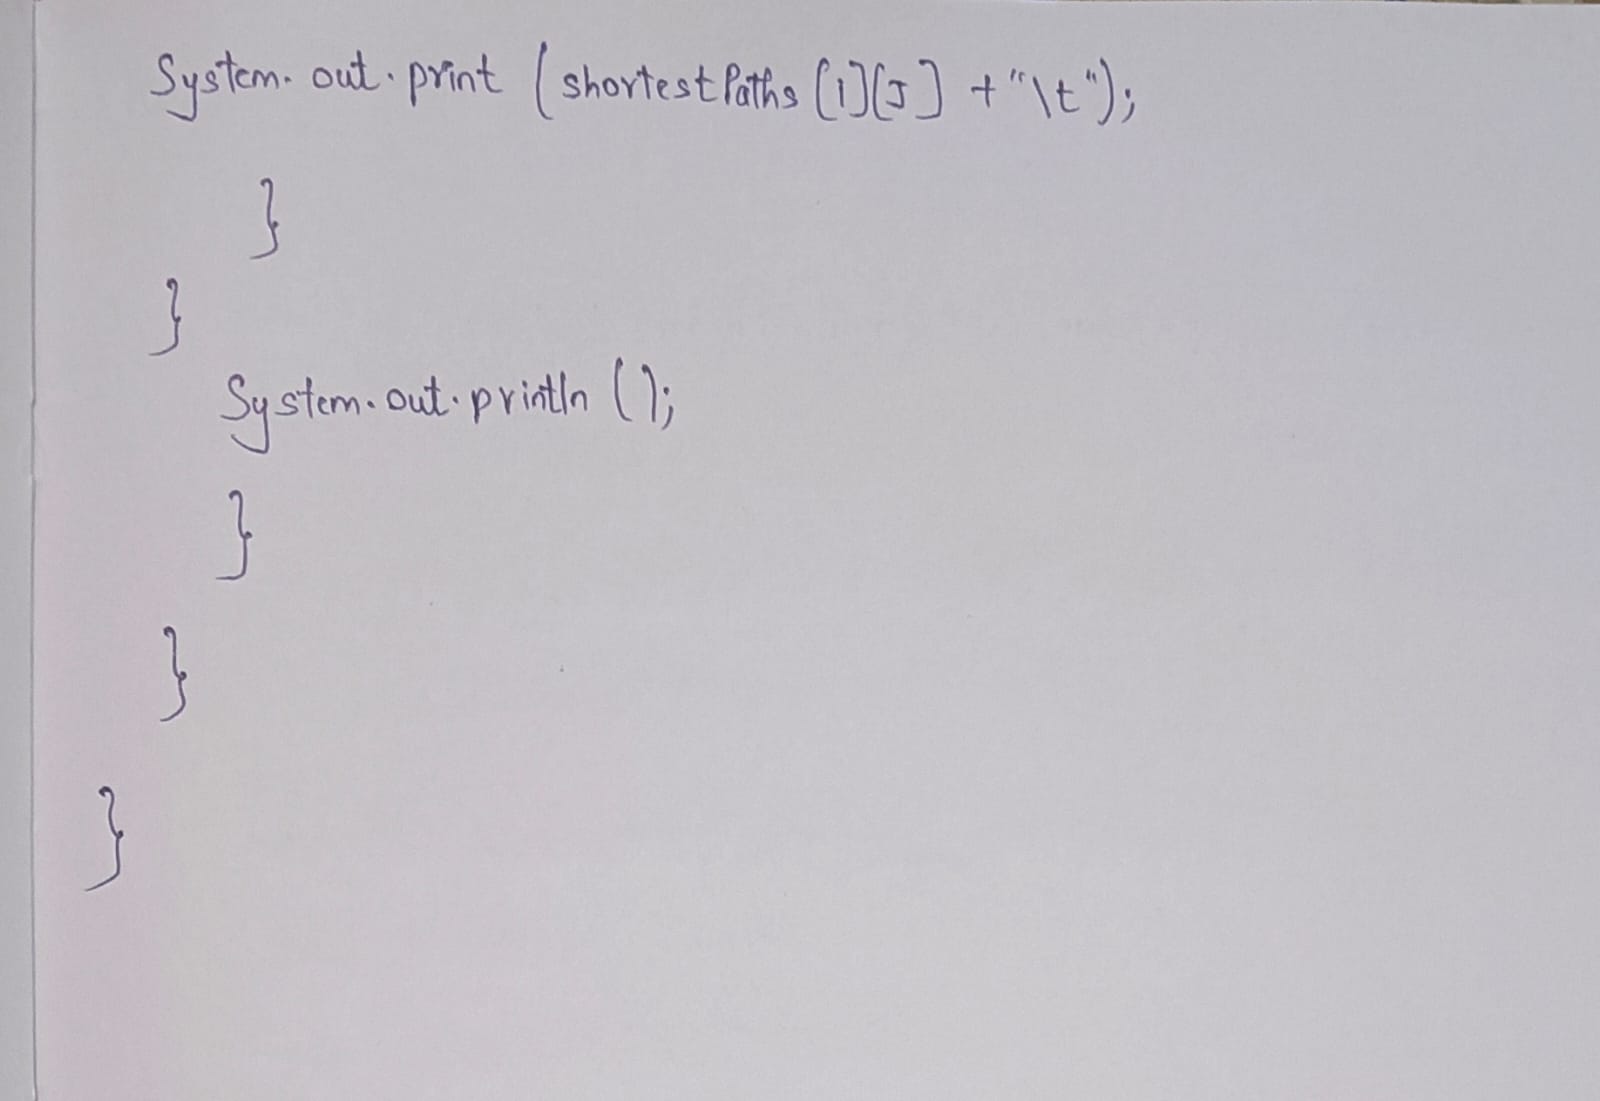 System.out.print (shortestPaths [i][J] + "\t");
}
}
System.out.println ();
}
}
}